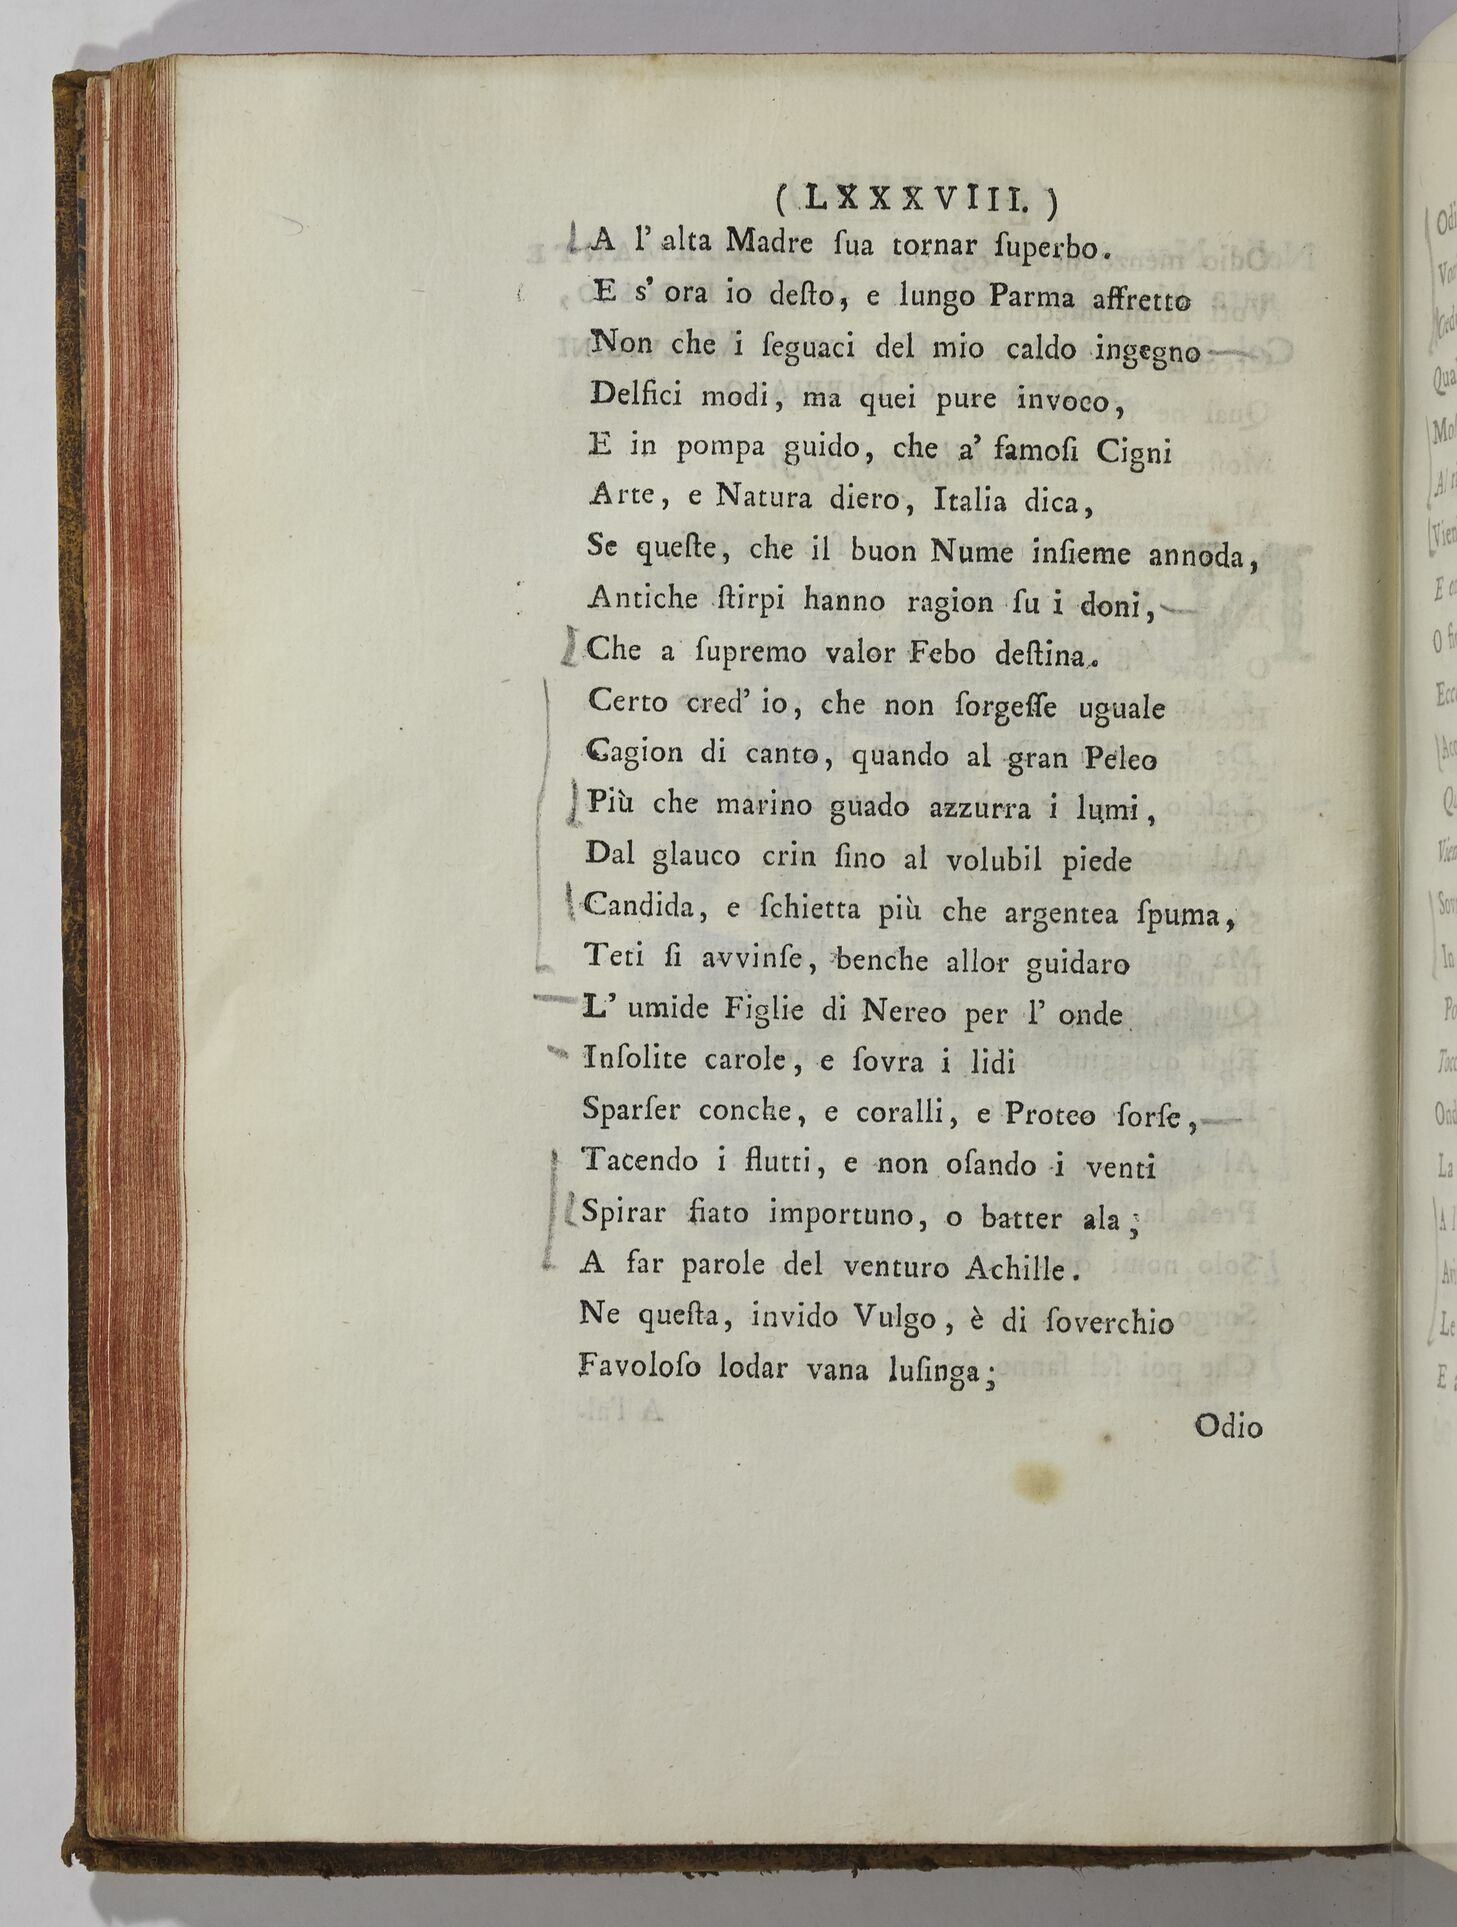 ( LXXXVIII. )
A l' alta Madre ſua tornar ſuperbo.
E s' ora io deſto, e lungo Parma affretto
Non che i ſeguaci del mio caldo ingegno
Delfici modi, ma quei pure invoco,
E in pompa guido, che a' famoſi Cigni
Arte, e Natura diero, Italia dica,
Se queſte, che il buon Nume inſieme annoda,
Antiche ſtirpi hanno ragion ſu i doni,
Che a ſupremo valor Febo deſtina.
Certo cred' io, che non ſorgeſſe uguale
Cagion di canto, quando al gran Peleo
Più che marino guado azzurra i lumi,
Dal glauco crin ſino al volubil piede
Candida, e ſchietta più che argentea ſpuma,
Teti ſi avvinſe, benche allor guidaro
L' umide Figlie di Nereo per l' onde
Inſolite carole, e ſovra i lidi
Sparſer conche, e coralli, e Proteo ſorſe,
Tacendo i flutti, e non oſando i venti
Spirar fiato importuno, o batter ala;
A far parole del venturo Achille.
Ne queſta, invido Vulgo, è di ſoverchio
Favoloſo lodar vana luſinga;
Odio